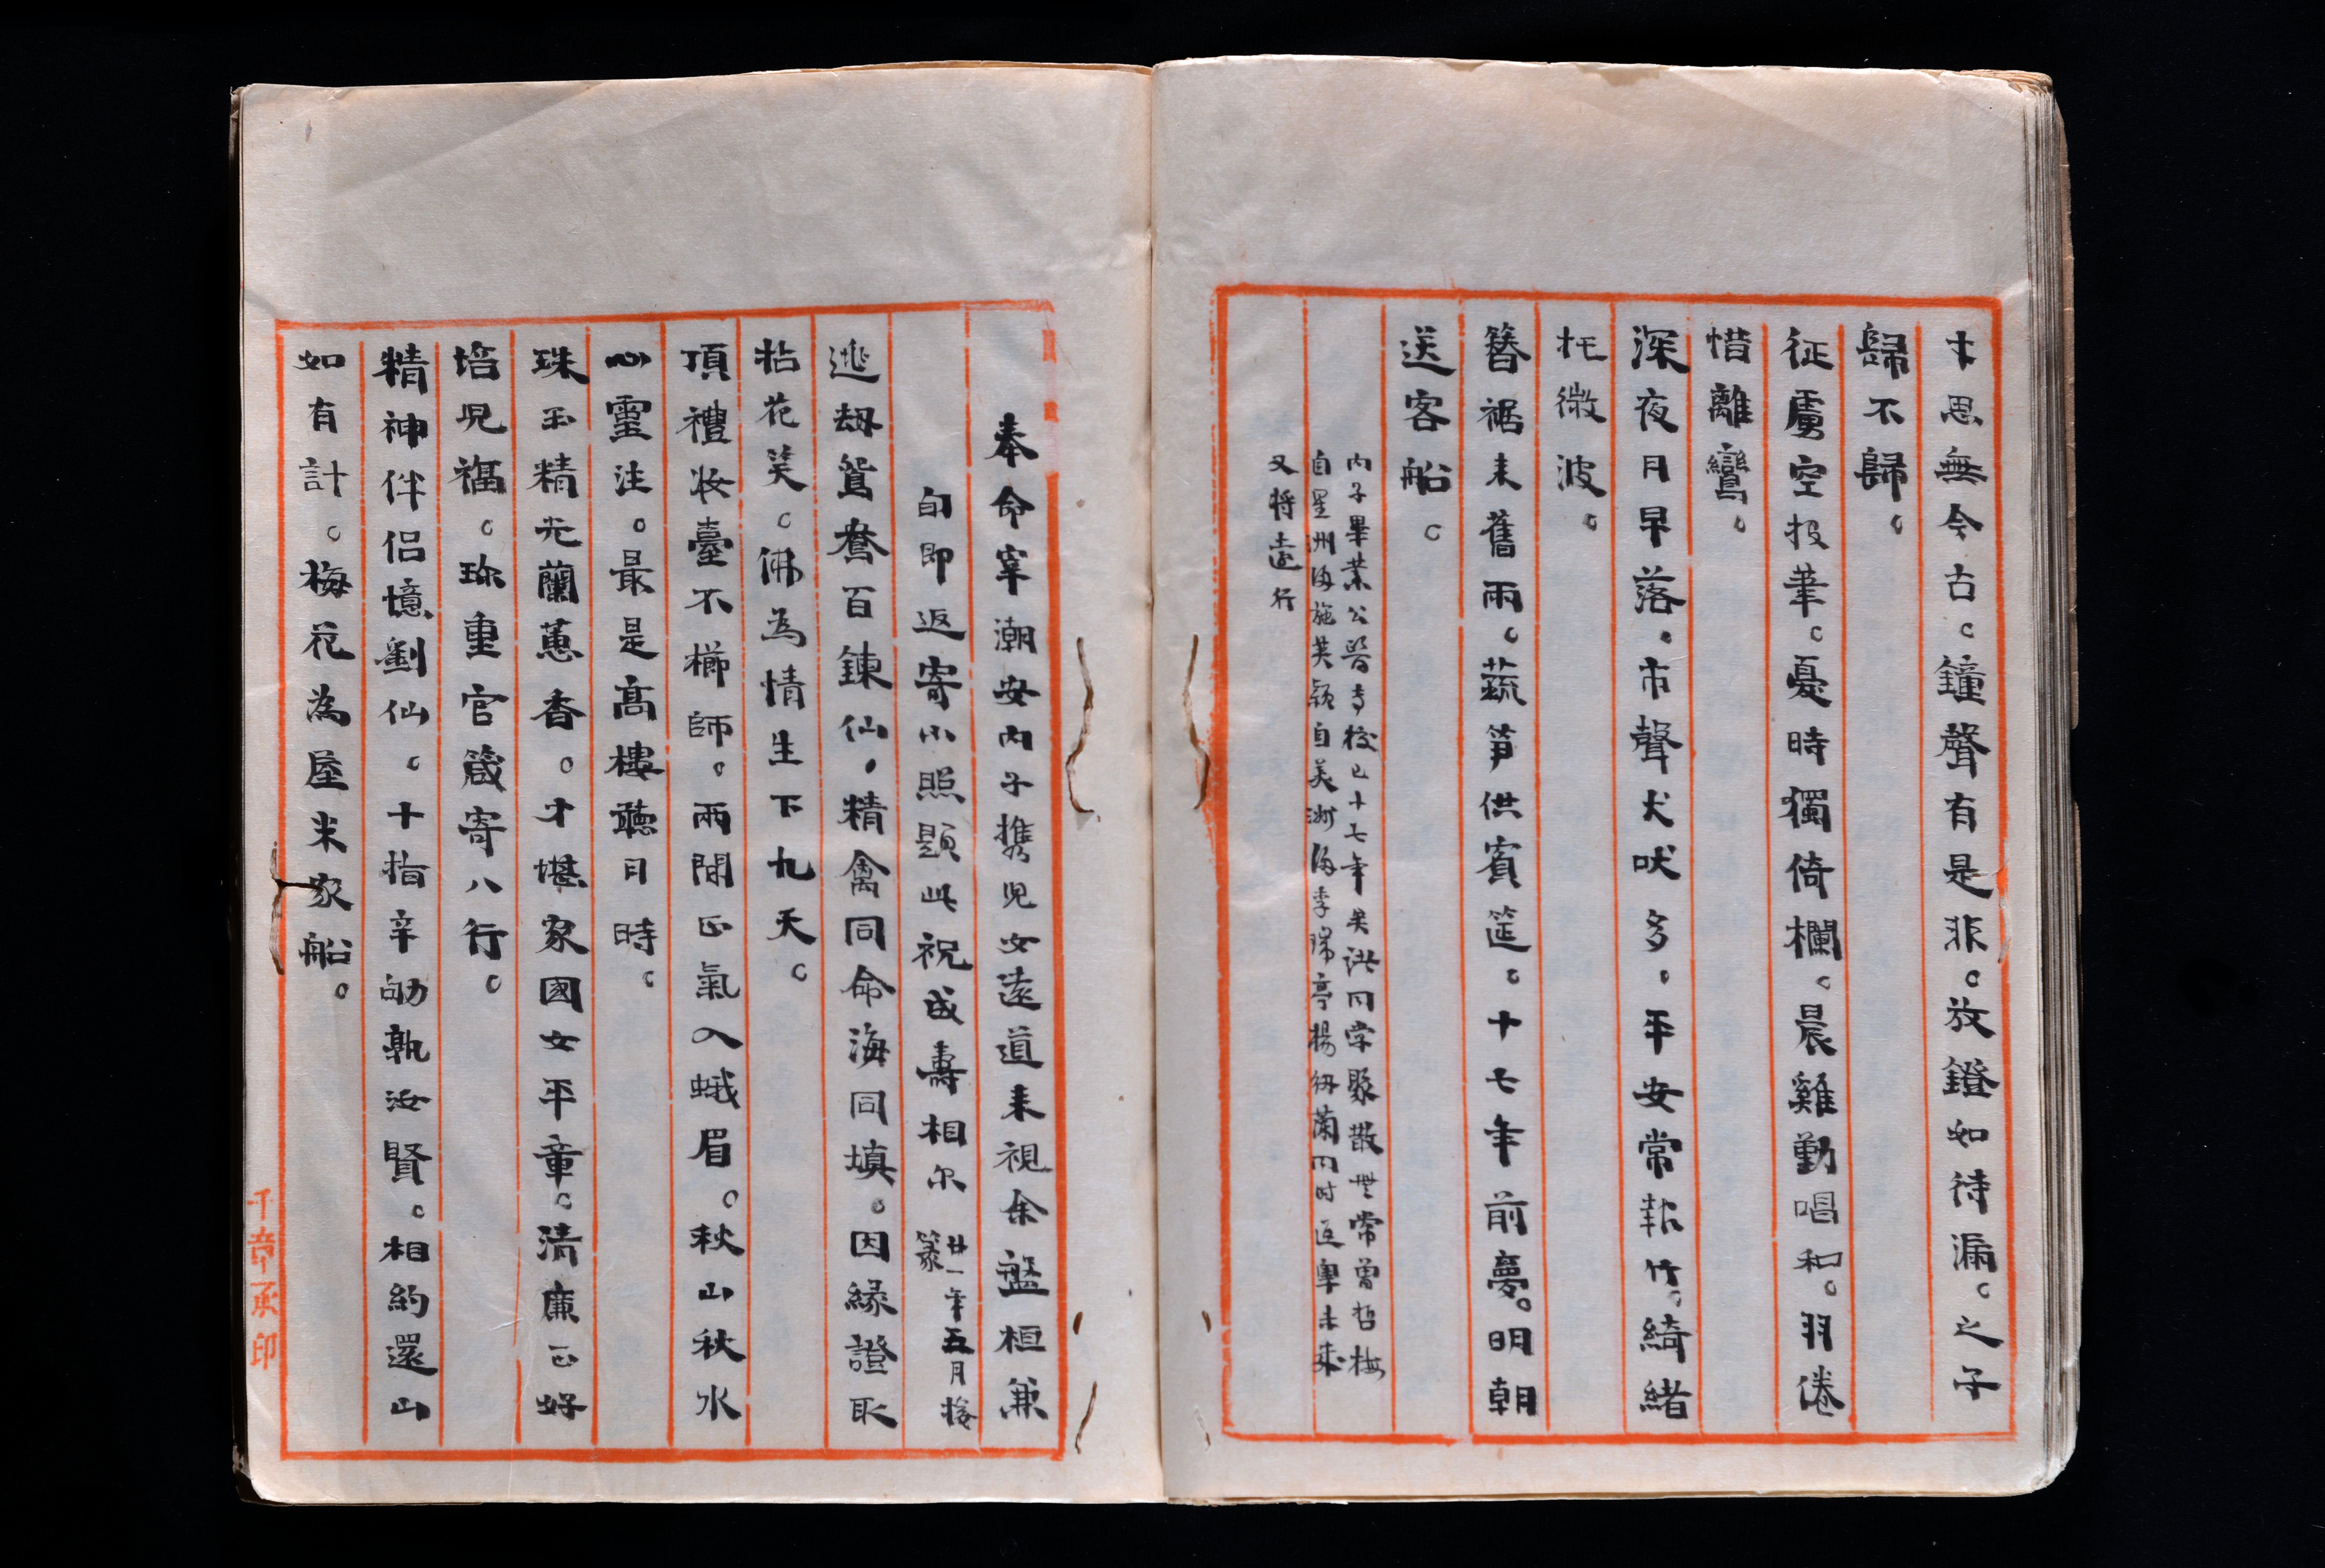 才思無今古。鐘聲有是非。放鐙如待漏。之子
歸不歸。
征虜空投筆。憂時獨倚欄。晨雞勤唱和。羽倦
惜離鸞。
深夜月早落。市聲犬吠多。平安常報竹。綺緒
托微波。
簪裾來舊雨。蔬笋供賓筵。十七年前夢。明朝
送客船。
內子畢業公醫專校已十七年矣洪同學聚散無常曾哲梅
自星洲海施英穎自美洲海李瑞亭楊紉蘭同时返粵未來
又將遠行
奉命宰潮安內子攜児女遠道来視余盤桓兼
旬即返寄小照題此祝成壽相尓 廿一年五月接
篆
逃劫鴛鴦百鍊仙。精禽同命海同填。因緣證取
拈花笑。佛為情生下九天。
頂禮妝臺不櫛師。兩間正氣入蛾眉。秋山秋水
心靈注。最是高樓聽日時。
珠玉精光蘭蕙香。才堪家國女平章。清廉正好
培児福。珍重官箴寄八行。
精神伴侶憶劉仙。十指辛劬孰汝賢。相約還山
如有計。梅花為屋米家船。
千章承印